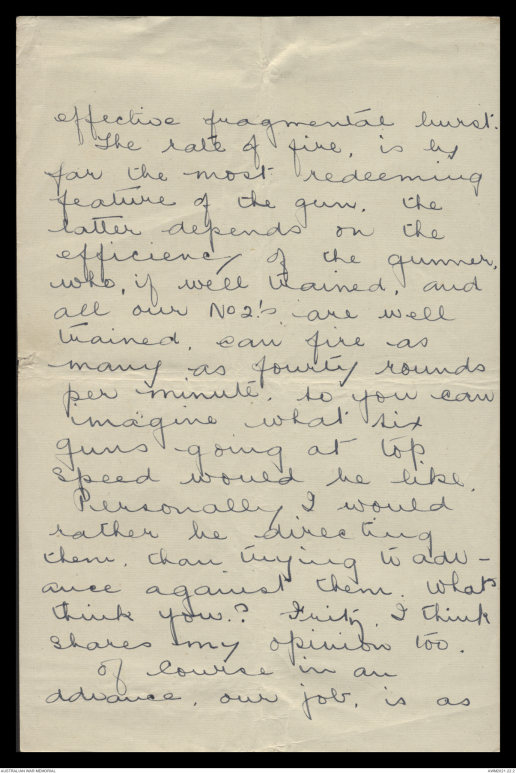 effective fragmental burst.
The rate of fire, is by
far the most redeeming
feature of the gun, the
latter depends on the
efficiency of the gunner,
who, if well trained, and
all our No 2's, are well
trained, can fire as
many as fourty rounds
per minute, so you can
imagine what six
guns going at top
speed would be like.
Personally I would
rather be directing
them, than trying to adv-
ance against them. What
think you? Fritz, I think
shares my opinion too.
Of course in an
advance, our job, is as
AUSTRALIAN WAR MEMORIAL
AWM2021.22.2